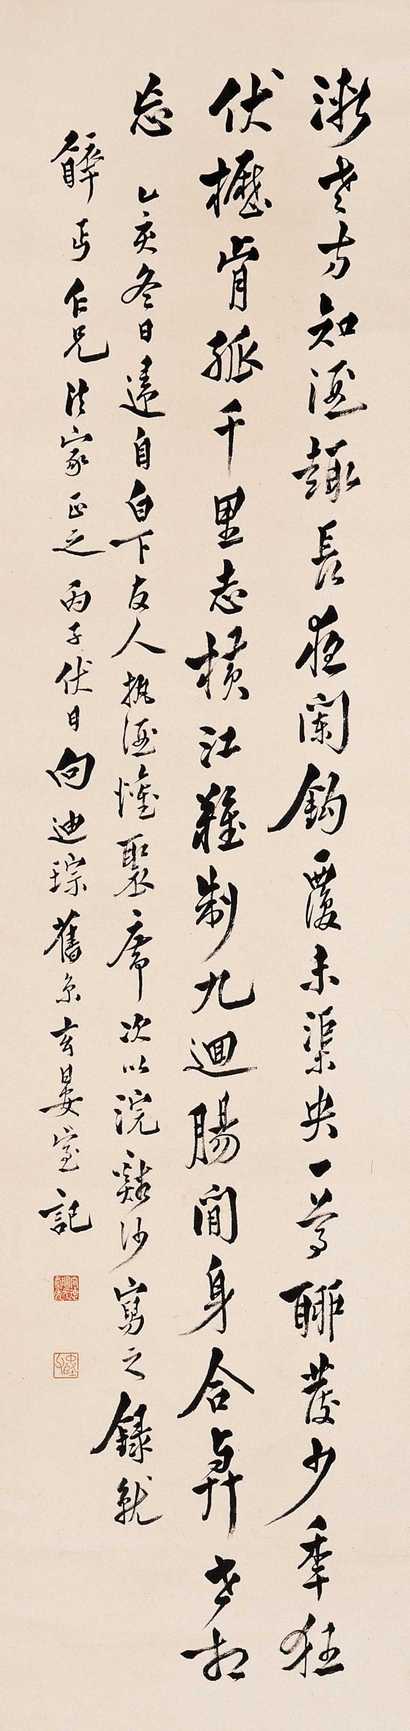 漸老方知酒趣長夜闌鉤覆未渠央一尊聊發少年狂
伏櫪肯孤千里志橫江難制九迴腸閒身合與世相
忘 乙亥冬日還自白下友人執酒懽聚席次以浣谿沙寫之 錄就
丐仁兄法家正之 丙子伏日向迪琮舊京玄晏室記